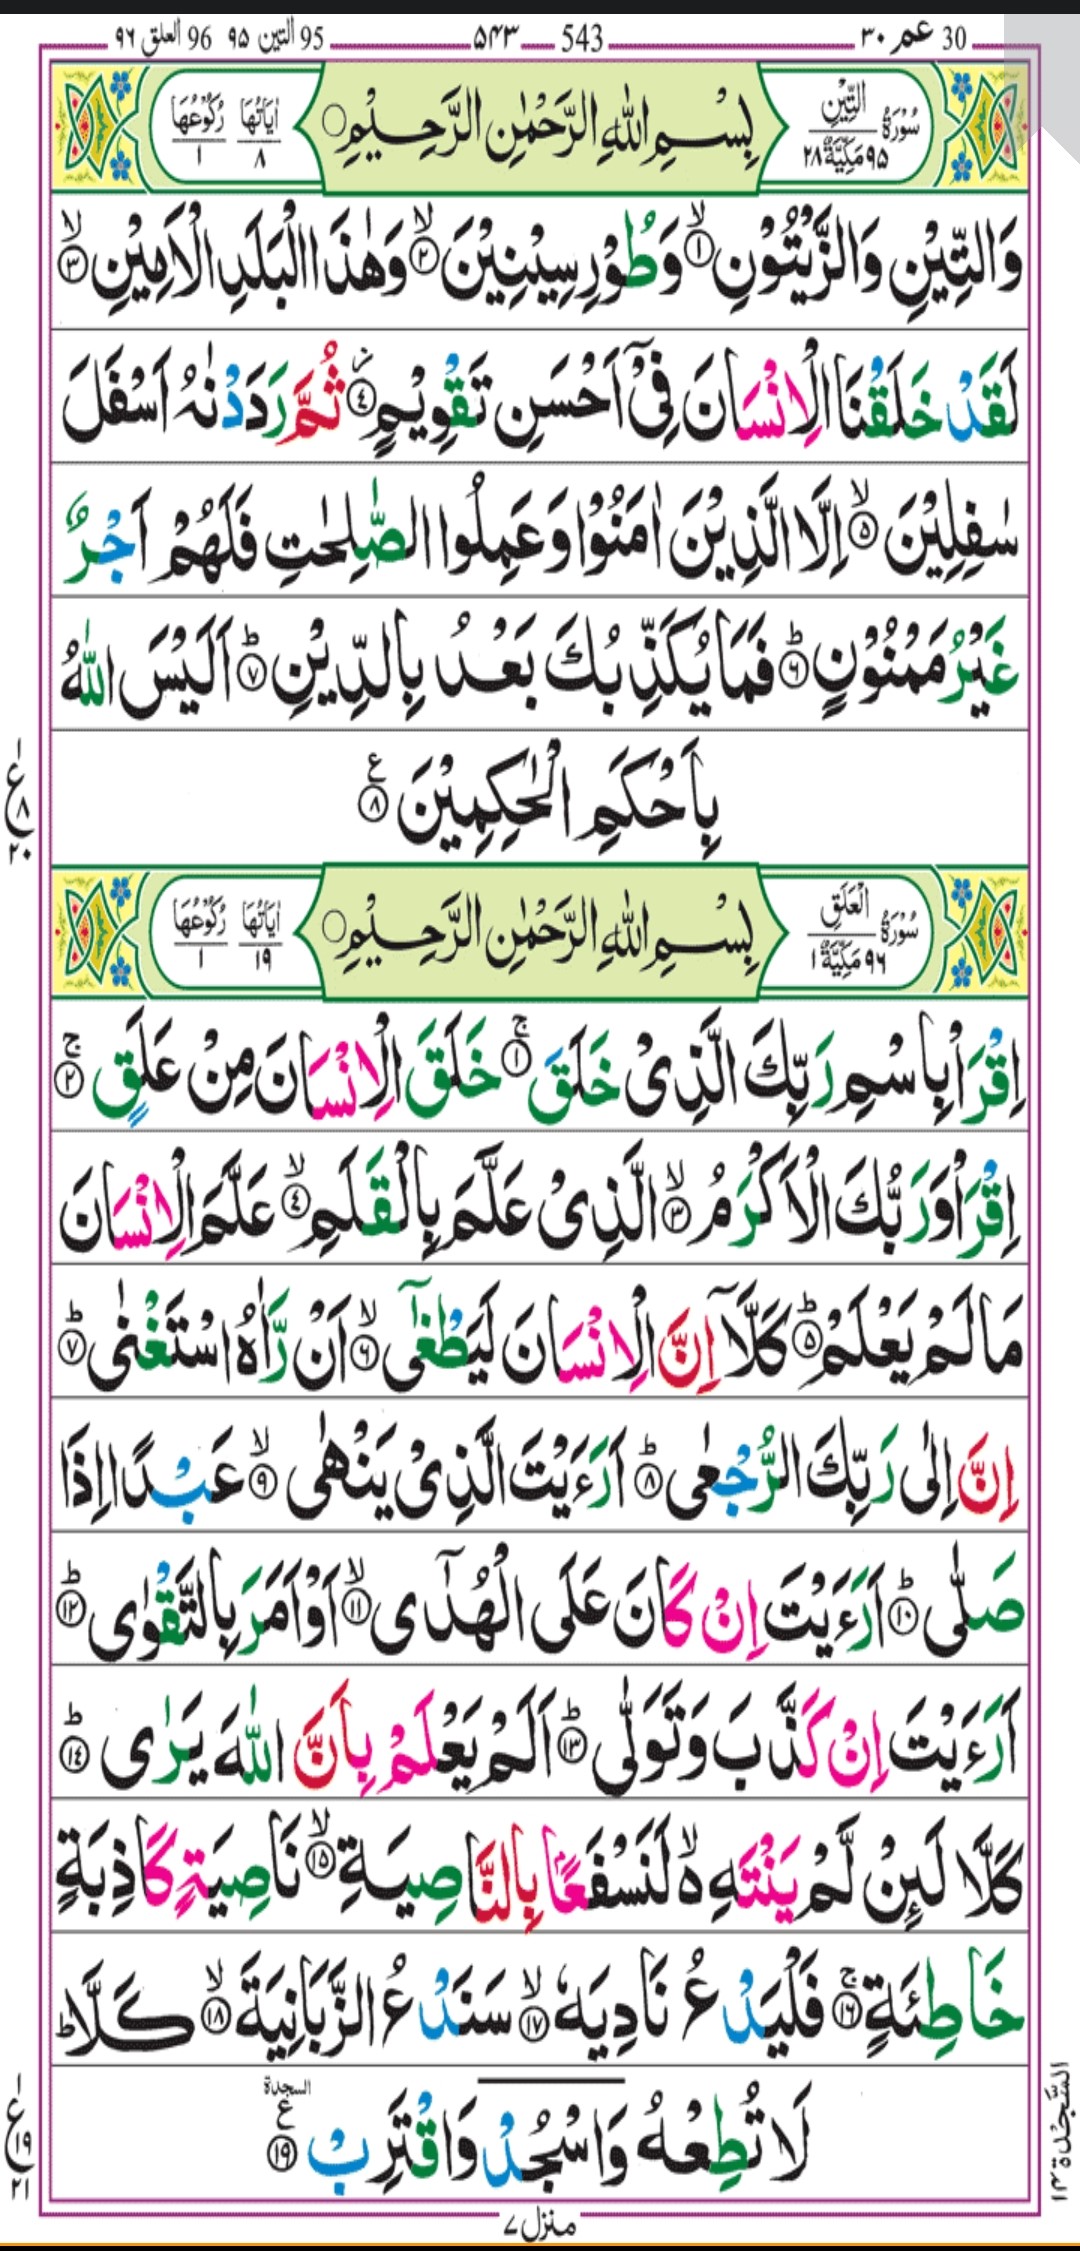 30 عم ۳۰ 543 ۵۴۳ 95 التين ۹۵ 96 العلق ۹۶
سُوْرَةُ التِّيْنِ ۹۵ مَكِّيَّةٌ ۲۸ بِسْمِ اللّٰهِ الرَّحْمٰنِ الرَّحِيْمِ ○ اٰيَاتُهَا ۸ رُكُوْعُهَا ۱
وَالتِّيْنِ وَالزَّيْتُوْنِ ۙ﴿۱﴾ وَطُوْرِ سِيْنِيْنَ ۙ﴿۲﴾ وَهٰذَا الْبَلَدِ الْاَمِيْنِ ۙ﴿۳﴾
لَقَدْ خَلَقْنَا الْاِنْسَانَ فِيْٓ اَحْسَنِ تَقْوِيْمٍ ؗ﴿۴﴾ ثُمَّ رَدَدْنٰهُ اَسْفَلَ
سٰفِلِيْنَ ۙ﴿۵﴾ اِلَّا الَّذِيْنَ اٰمَنُوْا وَعَمِلُوا الصّٰلِحٰتِ فَلَهُمْ اَجْرٌ
غَيْرُ مَمْنُوْنٍ ؕ﴿۶﴾ فَمَا يُكَذِّبُكَ بَعْدُ بِالدِّيْنِ ؕ﴿۷﴾ اَلَيْسَ اللّٰهُ
بِاَحْكَمِ الْحٰكِمِيْنَ ﴿۸﴾ ع
ع ۱ ۸ ۲۰
سُوْرَةُ الْعَلَقِ ۹۶ مَكِّيَّةٌ ۱ بِسْمِ اللّٰهِ الرَّحْمٰنِ الرَّحِيْمِ ○ اٰيَاتُهَا ۱۹ رُكُوْعُهَا ۱
اِقْرَاْ بِاسْمِ رَبِّكَ الَّذِيْ خَلَقَ ۚ﴿۱﴾ خَلَقَ الْاِنْسَانَ مِنْ عَلَقٍ ۚ﴿۲﴾
اِقْرَاْ وَرَبُّكَ الْاَكْرَمُ ۙ﴿۳﴾ الَّذِيْ عَلَّمَ بِالْقَلَمِ ۙ﴿۴﴾ عَلَّمَ الْاِنْسَانَ
مَا لَمْ يَعْلَمْ ؕ﴿۵﴾ كَلَّآ اِنَّ الْاِنْسَانَ لَيَطْغٰٓى ۙ﴿۶﴾ اَنْ رَّاٰهُ اسْتَغْنٰى ؕ﴿۷﴾
اِنَّ اِلٰى رَبِّكَ الرُّجْعٰى ؕ﴿۸﴾ اَرَءَيْتَ الَّذِيْ يَنْهٰى ۙ﴿۹﴾ عَبْدًا اِذَا
صَلّٰى ؕ﴿۱۰﴾ اَرَءَيْتَ اِنْ كَانَ عَلَى الْهُدٰٓى ۙ﴿۱۱﴾ اَوْ اَمَرَ بِالتَّقْوٰى ؕ﴿۱۲﴾
اَرَءَيْتَ اِنْ كَذَّبَ وَتَوَلّٰى ؕ﴿۱۳﴾ اَلَمْ يَعْلَمْ بِاَنَّ اللّٰهَ يَرٰى ؕ﴿۱۴﴾
كَلَّا لَىِٕنْ لَّمْ يَنْتَهِ ۙ۬ لَنَسْفَعًۢا بِالنَّاصِيَةِ ۙ﴿۱۵﴾ نَاصِيَةٍ كَاذِبَةٍ
خَاطِئَةٍ ۚ﴿۱۶﴾ فَلْيَدْعُ نَادِيَهٗ ۙ﴿۱۷﴾ سَنَدْعُ الزَّبَانِيَةَ ۙ﴿۱۸﴾ كَلَّا ؕ
لَا تُطِعْهُ وَاسْجُدْ وَاقْتَرِبْ ﴿۱۹﴾ ع السجدة
السَّجْدَة ۱۴
ع ۱ ۱۹ ۲۱
منزل ۷